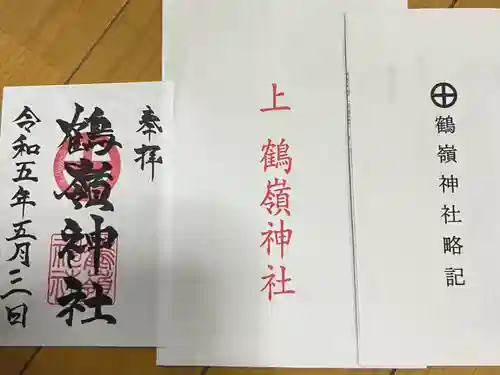 奉拝
鶴嶺神社
令和五年五月三日
上 鶴嶺神社
鶴嶺神社略記